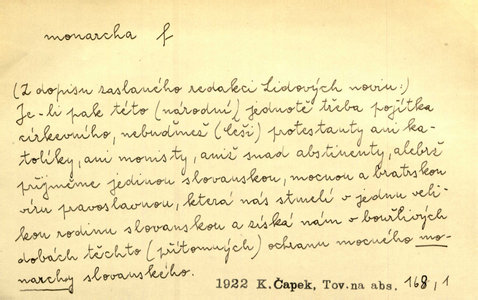 monarcha f
(Z dopisu zaslaného redakci Lidových novin:)
Je-li pak této (národní) jednotě třeba pojítka
církevního, nebuďmež (Češi) protestanty ani ka-
tolíky, ani monisty, aniž snad abstinenty, alebrž
přijměme jedinou slovanskou, mocnou a bratrskou
víru pravoslavnou, která nás stmelí v jednu veli-
kou rodinu slovanskou a získá nám v bouřlivých
dobách těchto (přítomných) ochranu mocného mo-
narchy slovanského.
1922 K. Čapek, Tov. na abs. 168, 1